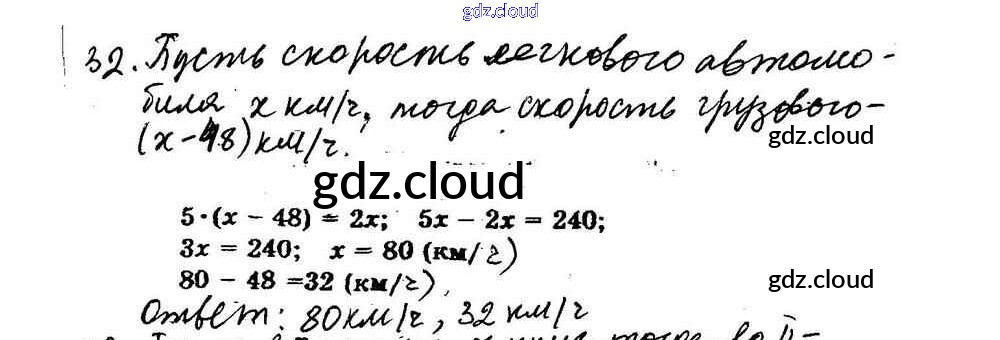 gdz.cloud
32. Пусть скорость легкового автомо-
биля x км/ч, тогда скорость грузового-
gdz.cloud
(x-48) км/ч.
gdz.cloud
5·(x − 48) = 2x; 5x − 2x = 240;
3x = 240; x = 80 (км/ч)
80 − 48 =32 (км/ч),
gdz.cloud
Ответ: 80км/ч, 32 км/ч